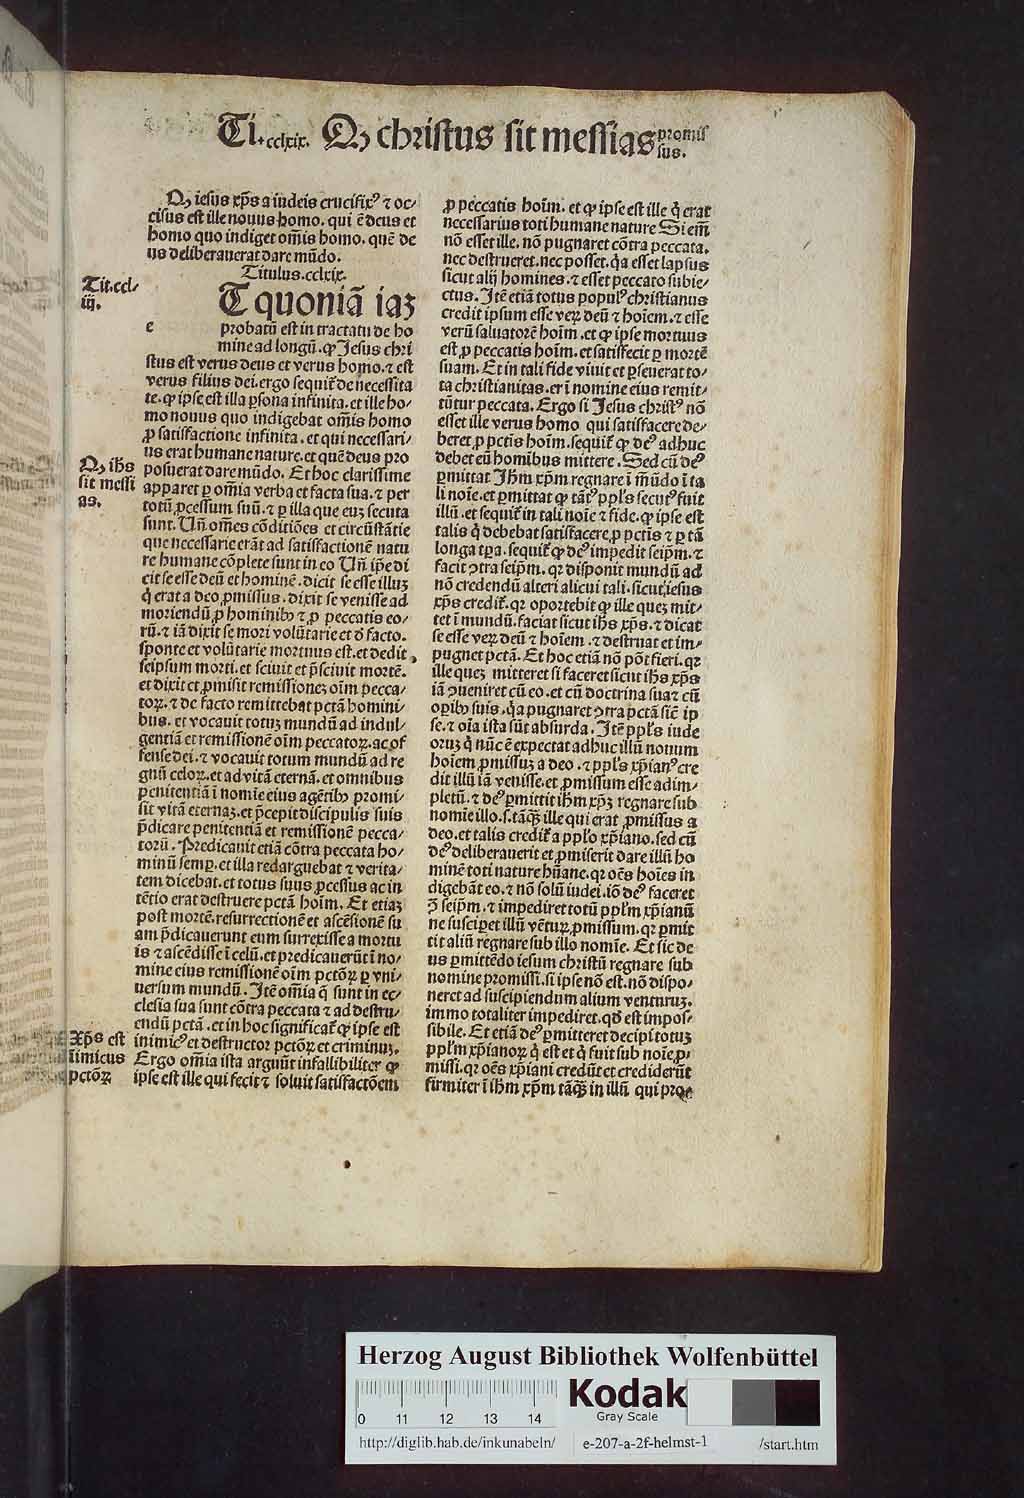 Ti.cclxix. Qꝫ christus sit messias promis
sus.
Qꝫ iesus xp̄s a iudeis crucifixꝰ ⁊ oc⸗
cisus est ille nouus homo. qui ē deus et
homo quo indiget om̄is homo. quē de
us deliberauerat dare mūdo.
Titulus.cclxix.
Tit.ccl⸗
iij.
e
T quoniā iaꝫ
probatū est in tractatu de ho
mine ad longū. ꝙ Jesus chri
stus est verus deus et verus homo. ⁊ est
verus filius dei. ergo sequit̄ de necessita
te. ꝙ ipse est illa ꝑsona infinita. et ille ho⸗
mo nouus quo indigebat om̄is homo
ꝓ satisfactione infinita. et qui necessari⸗
us erat humane nature. et quē deus pro
Qꝫ ihs
sit messi
as.
posuerat dare mūdo. Et hoc clarissime
apparet ꝑ om̄ia verba et facta sua. ⁊ per
totū ꝓcessum suū. ⁊ ꝑ illa que euꝫ secuta
sunt. Un̄ om̄es cōditiōes et circūstātie
que necessarie erāt ad satisfactionē natu
re humane cōplete sunt in eo Un̄ ip̄e di
cit se esse deū et hominē. dicit se esse illuꝫ
q̄ erat a deo ꝓmissus. dixit se venisse ad
moriendū ꝓ hominibꝰ ⁊ ꝓ peccatis eo⸗
rū. ⁊ iā dixit se mori volūtarie et d̄ facto.
sponte et volūtarie mortuus est. et dedit
seipsum morti. et sciuit et p̄sciuit mortē.
et dixit et ꝓmisit remissioneꝫ oīm pecca⸗
toꝝ. ⁊ de facto remittebat pctā homini⸗
bus. et vocauit totuꝫ mundū ad indul⸗
gentiā et remissionē oīm peccatoꝝ. ac of
fense dei. ⁊ vocauit totum mundū ad re
gnū celoꝝ. et ad vitā eternā. et omnibus
penitentiā ī nomīe eius agētibꝰ promi⸗
sit vitā eternaꝫ. et p̄cepit discipulis suis
p̄dicare penitentiā et remissionē pecca⸗
torū. Predicauit etiā cōtra peccata ho⸗
minū semꝑ. et illa redarguebat ⁊ verita⸗
tem dicebat. et totus suus ꝓcessus ac in
tētio erat destruere pctā hoīm. Et etiaꝫ
post mortē. resurrectionē et ascēsionē su
am p̄dicauerunt eum surrexisse a mortu
is ⁊ ascēdisse ī celū. et predicauerūt ī no⸗
mine eius remissionē oīm pctōꝝ ꝑ vni⸗
uersum mundū. Itē om̄ia q̄ sunt in ec⸗
clesia sua sunt cōtra peccata ⁊ ad destru⸗
endū pctā. et in hoc significat̄ ꝙ ipse est
Xp̄s est
īimicus
pctōꝝ
inimicꝰ et destructor pctōꝝ et criminuꝫ.
Ergo om̄ia ista arguūt infallibiliter ꝙ
ipse est ille qui fecit ⁊ soluit satisfactōem
ꝓ peccatis hoīm. et ꝙ ipse est ille q̄ erat
necessarius toti humane nature Si em̄
nō esset ille. nō pugnaret cōtra peccata.
nec destrueret. nec posset. q̄a esset lapsus
sicut alij homines. ⁊ esset peccato subie⸗
ctus. Itē etiā totus populꝰ christianus
credit ipsum esse veꝝ deū ⁊ hoīem. ⁊ esse
verū saluatorē hoīm. et ꝙ ipse mortuus
est ꝓ peccatis hoīm. et satisfecit ꝑ mortē
suam. Et in tali fide viuit et ꝑseuerat to⸗
ta christianitas. er ī nomine eius remit⸗
tūtur peccata. Ergo si Jesus christꝰ nō
esset ille verus homo qui satisfacere de⸗
beret ꝓ pctis hoīm. sequit̄ ꝙ deꝰ adhuc
debet eū homībus mittere. Sed cū deꝰ
ꝑmittat Jh̄m xp̄m regnare ī mūdo ī ta
li noīe. et ꝑmittat ꝙ tātꝰ pplꝰs secutꝰ fuit
illū. et sequit̄ in tali noīe ⁊ fide. ꝙ ipse est
talis q̄ debebat satisfacere ꝓ pctis ⁊ ꝑ tā
longa tꝑa. sequit̄ ꝙ deꝰ impedit seip̄m. ⁊
facit ꝯtra seip̄m. qꝛ disponit mundū ad
nō credendū alteri alicui tali. sicut iesus
xp̄s credit̄. qꝛ oportebit ꝙ ille queꝫ mit⸗
tet ī mundū. faciat sicut ihs xp̄s. ⁊ dicat
se esse veꝝ deū ⁊ hoīem. ⁊ destruat et im⸗
pugnet pctā. Et hoc etiā nō pōt fieri. qꝛ
ille queꝫ mitteret si faceret sicut ihs xp̄s
iā ꝯueniret cū eo. et cū doctrina sua ⁊ cū
oꝑibꝰ suis. q̄a pugnaret ꝯtra pctā sic̄ ip
se. ⁊ oīa ista sūt absurda. Itē pplꝰs iude
oruꝫ q̄ nūc ē expectat adhuc illū nouum
hoīem ꝓmissuꝫ a deo. ⁊ pplꝰs xp̄ianꝰ cre
dit illū iā venisse. et ꝓmissum esse adim⸗
pletū. ⁊ deꝰ ꝑmittit ih̄m xp̄ꝫ regnare sub
nomīe illo. s. tāꝙꝫ ille qui erat ꝓmissus a
deo. et talis credit̄ a pplo xp̄iano. sed cū
deꝰ deliberauerit et ꝓmiserit dare illū ho
minē toti nature hūane. qꝛ oēs hoīes in
digebāt eo. ⁊ nō solū iudei. iō deꝰ faceret
ꝯ̄ seip̄m. ⁊ impediret totū pplm xp̄ianū
ne susciꝑet illū vētuꝝ ꝓmissum. qꝛ ꝑmit
tit aliū regnare sub illo nomīe. Et sic de
us ꝑmittēdo iesum christū regnare sub
nomine promissi. si ipse nō est. nō dispo⸗
neret ad suscipiendum alium venturuꝫ.
immo totaliter impediret. qd̄ est impos⸗
sibile. Et etiā deꝰ ꝑmitteret decipī totuꝫ
pplm xp̄ianoꝝ q̄ est et q̄ fuit sub noīe ꝓ⸗
missi. qꝛ oēs xp̄iani credūt et crediderūt
firmiter ī ih̄m xp̄m tāꝙꝫ in illū qui pro⸗
Herzog August Bibliothek Wolfenbüttel
0 11 12 13 14
Kodak
Gray Scale
http://diglib.hab.de/inkunabeln/ e-207-a-2f-helmst-1 /start.htm